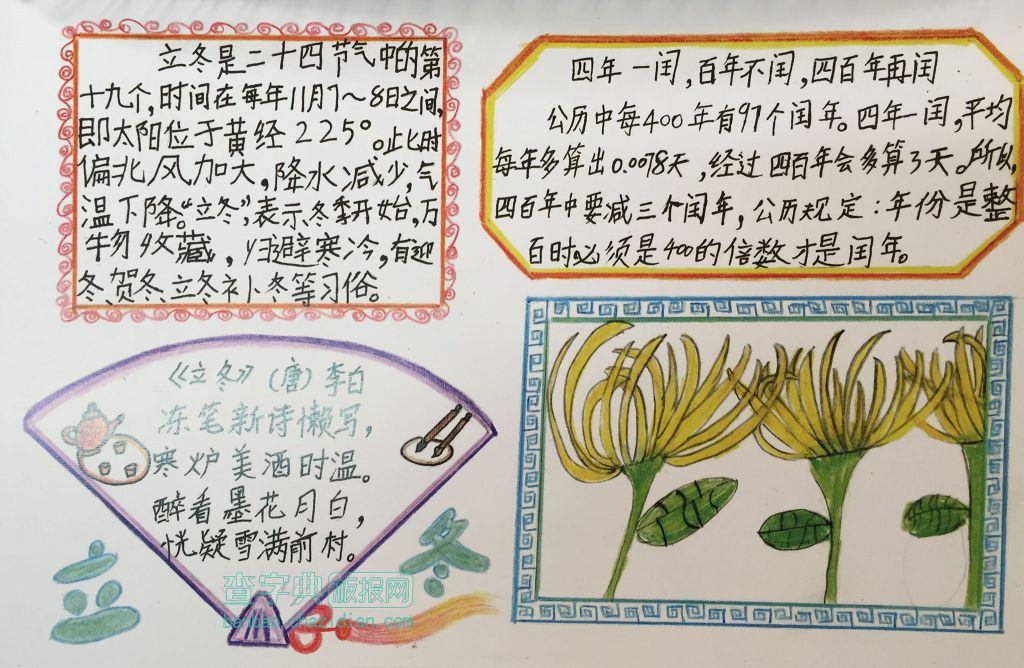 立冬是二十四节气中的第
十九个,时间在每年11月7～8日之间,
即太阳位于黄经225°。此时
偏北风加大,降水减少,气
温下降。“立冬”,表示冬季开始,万
物收藏,归避寒冷,有迎
冬、贺冬、立冬补冬等习俗。
四年一闰,百年不闰,四百年再闰
公历中每400年有97个闰年。四年一闰,平均
每年多算出0.0078天,经过四百年会多算3天。所以,
四百年中要减三个闰年,公历规定:年份是整
百时必须是400的倍数才是闰年。
《立冬》(唐)李白
冻笔新诗懒写,
寒炉美酒时温。
醉看墨花月白,
恍疑雪满前村。
立冬
查字典 板报网
banbao.chazidian.com